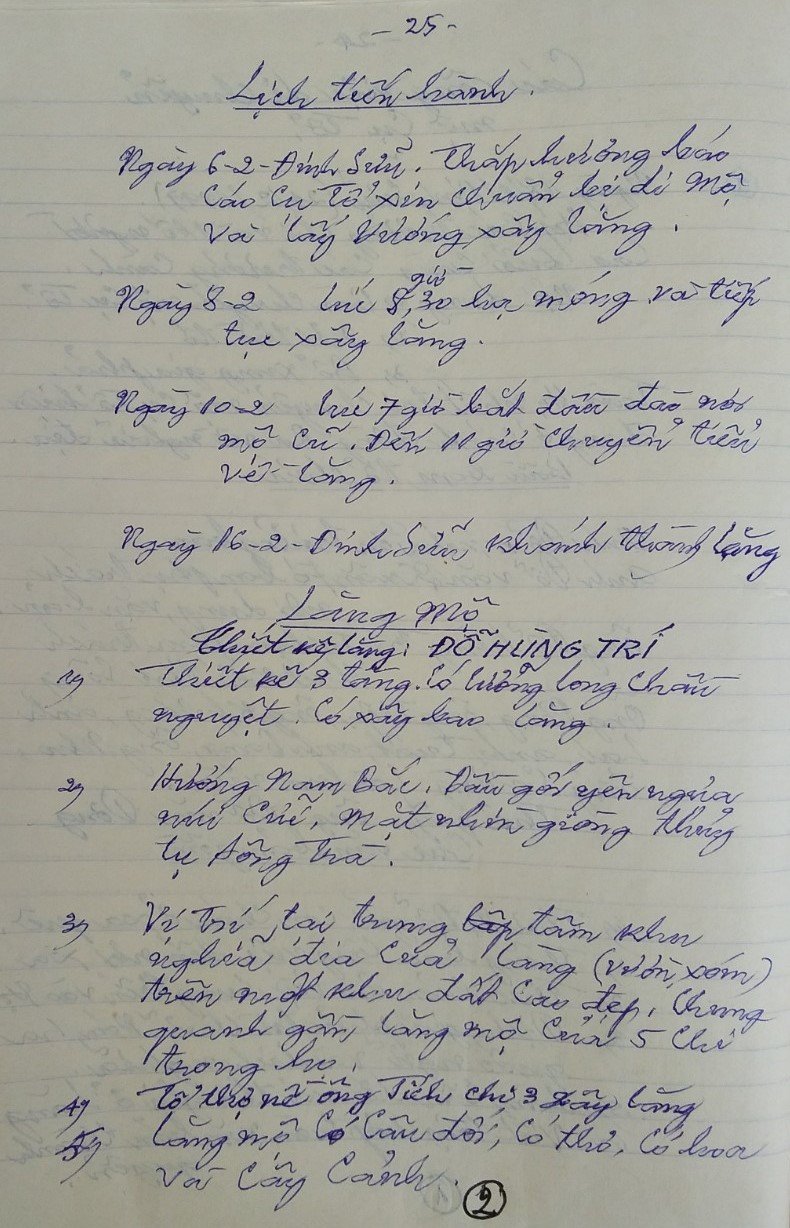 - 25 -
Lịch tiến hành.
Ngày 6-2-Đinh Sửu. Thắp hương báo
cáo cụ Tổ xin chuẩn bị di Mộ
và lấy hướng xây lăng.
Ngày 8-2 lúc 8 giờ 30 hạ móng và tiếp
tục xây lăng.
Ngày 10-2 lúc 7 giờ bắt đầu đào nơi
mộ cũ. Đến 11 giờ chuyển tiểu
về lăng.
Ngày 16-2-Đinh Sửu khánh thành lăng
Lăng Mộ
Thiết kế lăng: ĐỖ HÙNG TRÍ
1, Thiết kế 3 tầng. Có lưỡng long chầu
nguyệt. Có xây bao lăng.
2, Hướng Nam Bắc. Đầu gối yên ngựa
núi Cũi, mặt nhìn giòng thủy
tụ đồng Trà.
3, Vị Trí tại trung tâm khu
nghĩa địa của làng (vườn xóm)
trên một khu đất cao đẹp, chung
quanh gần lăng mộ của 5 chi
trong họ.
4, Tổ thợ nề ông Tích chi 3 xây lăng
5, lăng mộ có câu đối, có thơ, có hoa
và cây cảnh.
2